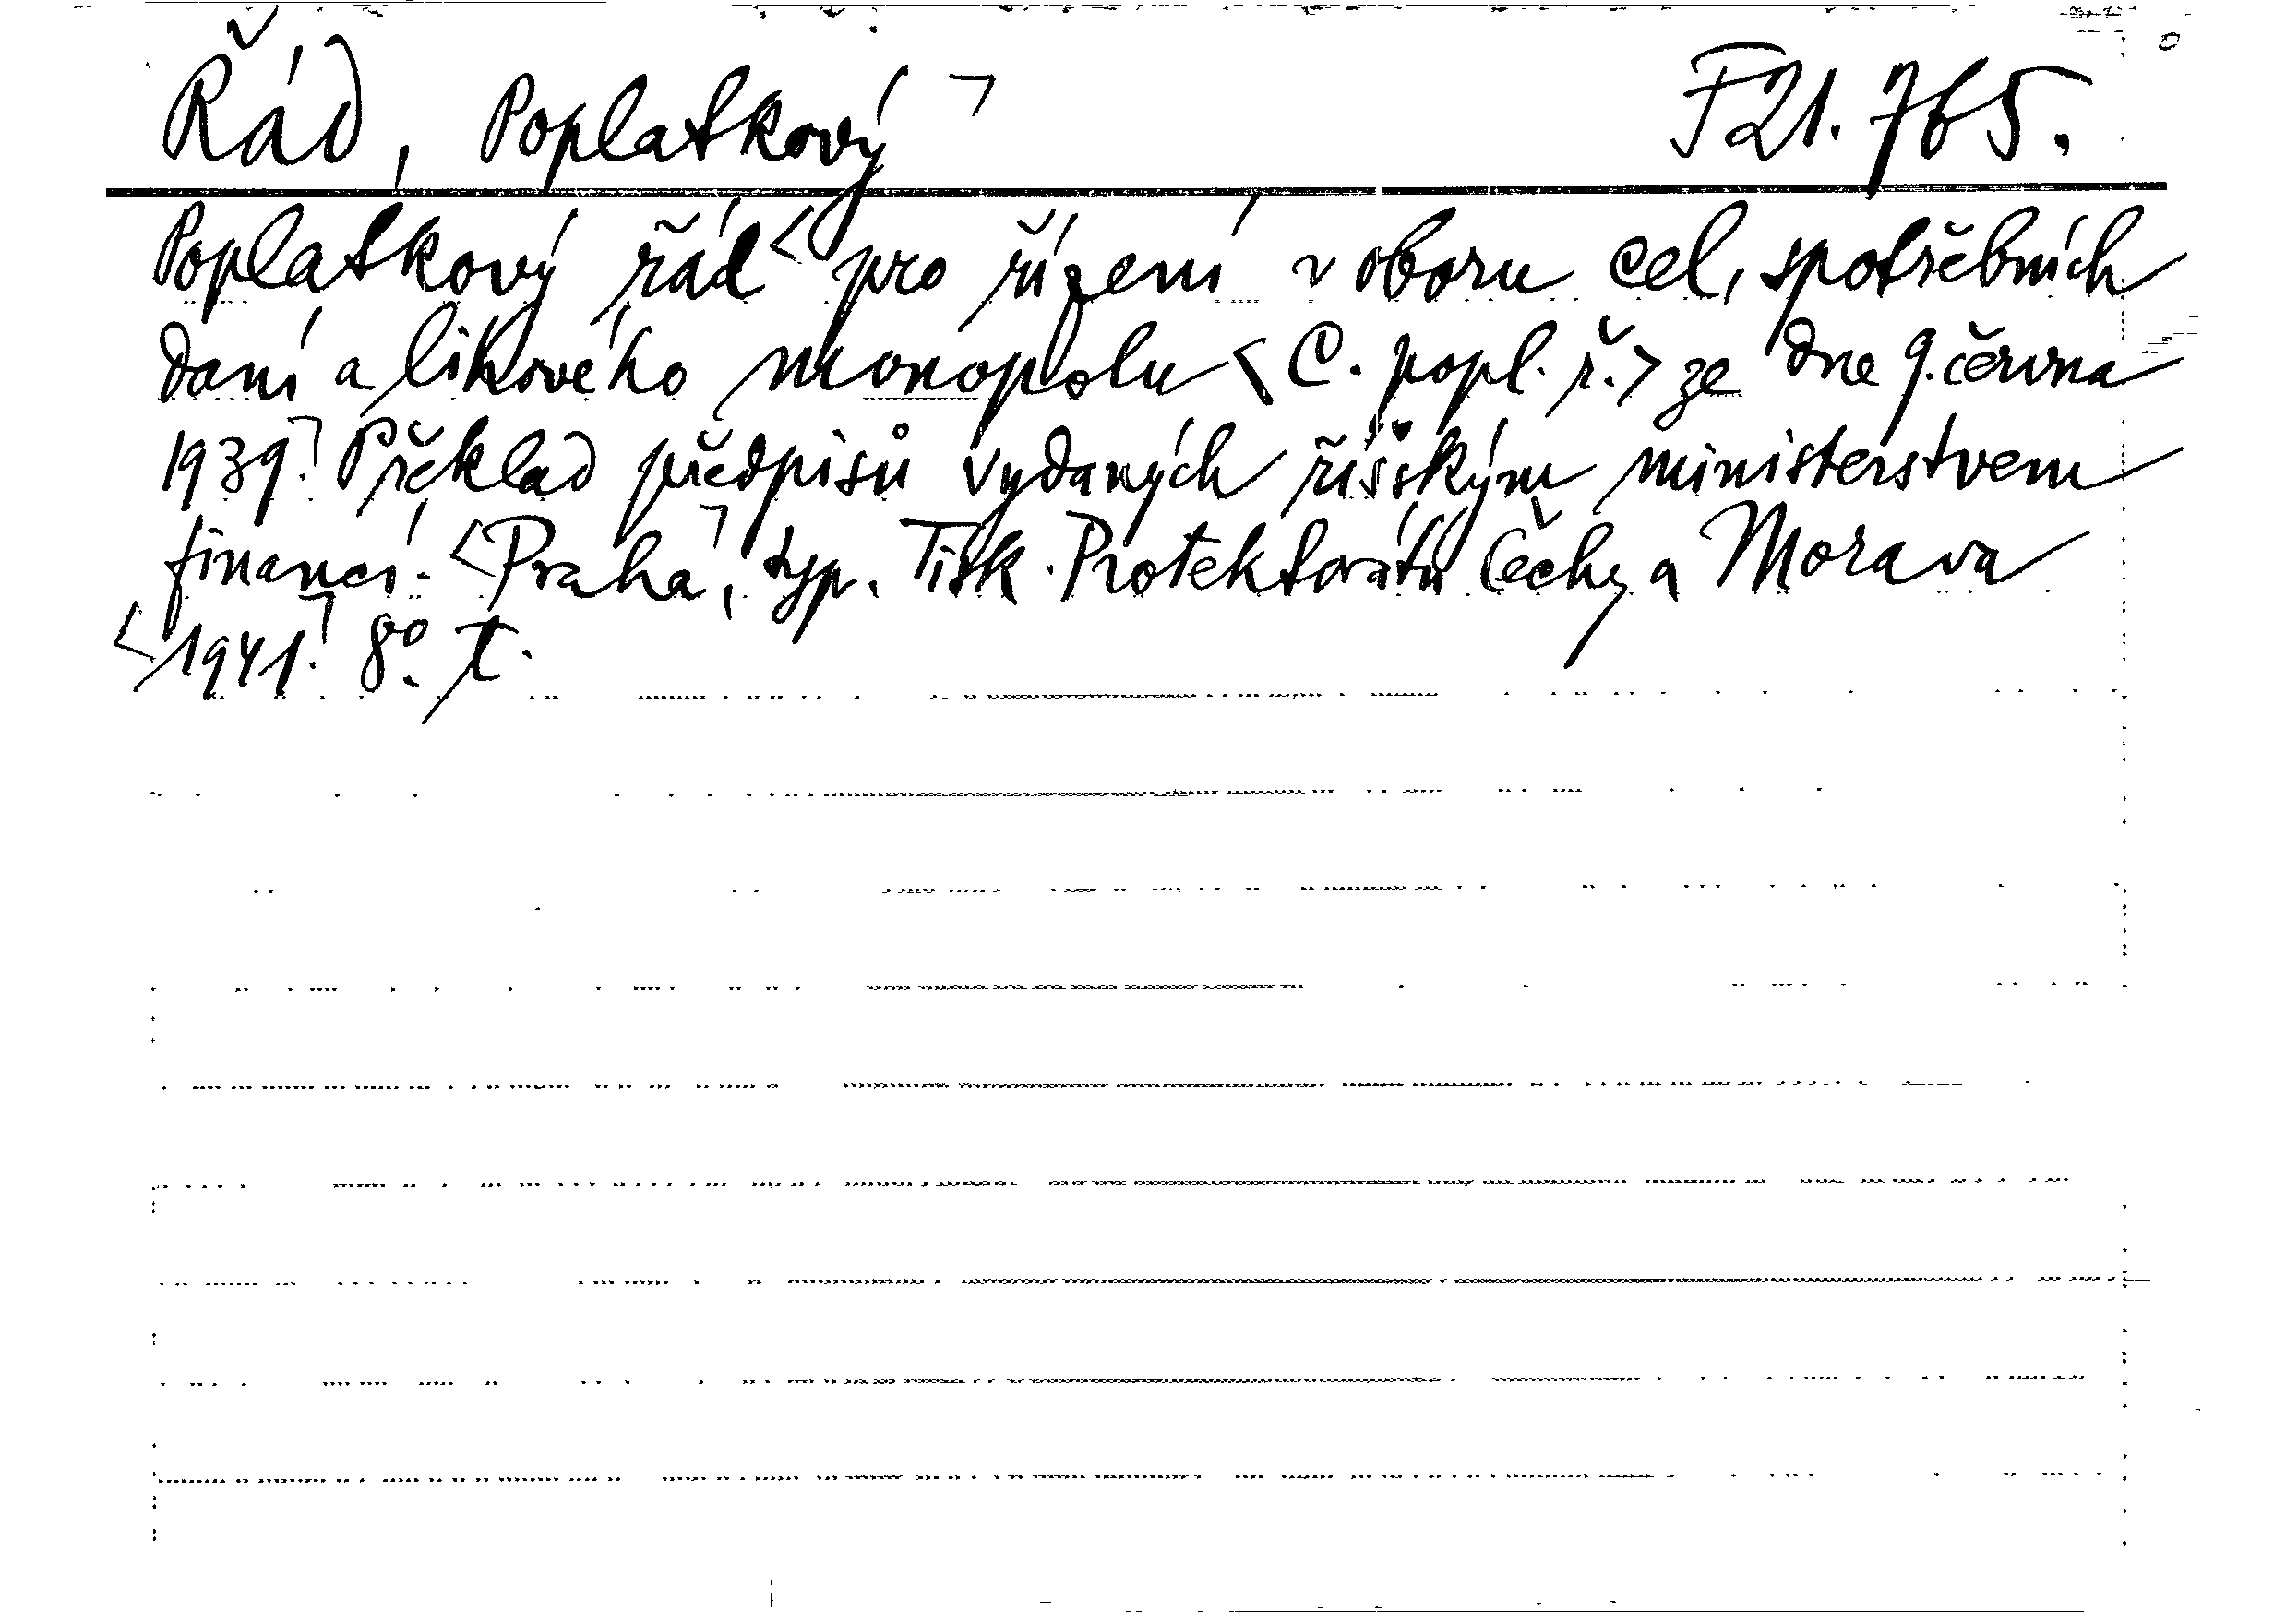 Řád, Poplatkový ¬ F21.765.
Poplatkový řád < pro řízení v oboru cel, spotřebních
daní a lihového monopolu < C. popl. ř. > ze dne 9. června
1939.¬ Překlad předpisů vydaných říšským ministerstvem
financí. <Praha¬, typ. Tisk. Protektorátu Čechy a Morava
<1941.¬ 8° t.